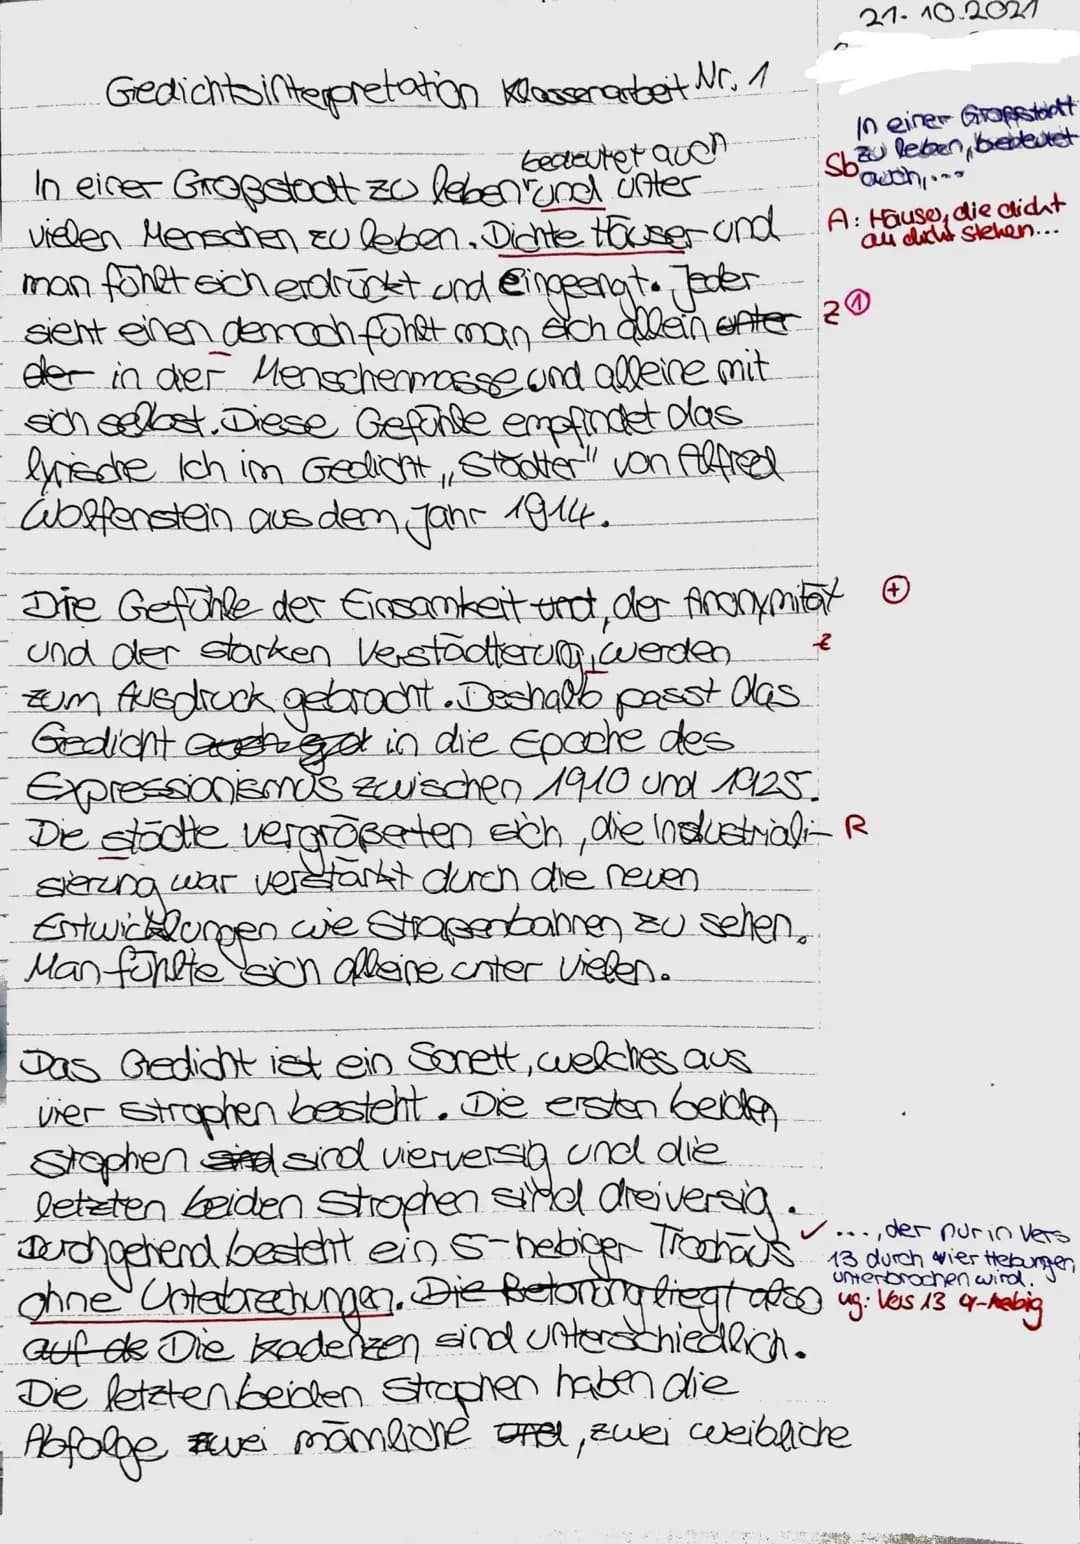 21.10.2021
Gedichtsinterpretation Klassenarbeit Nr. 1
bedeutet auch
In einer Großstadt zu leben und unter
vielen Menschen zu leben. Dichte Häuser und
man fühlt sich erdrückt und eingeengt. Jeder
sieht einen dennoch fühlt man sich allein unter
der in der Menschenmasse und alleine mit
sich selbst. Diese Gefühle empfindet das
lyrische Ich im Gedicht „Städter" von Alfred
Wolfenstein aus dem Jahr 1914.
In einer Großstadt
zu leben, bedeutet
Sb auch, ...
A: Häuser, die dicht
an dicht stehen...
Z 1
Die Gefühle der Einsamkeit und, der Anonymität
und der starken Verstädterung, werden
zum Ausdruck gebracht. Deshalb passt das
Gedicht in die Epoche des
Expressionismus zwischen 1910 und 1925.
Die städte vergrößerten sich, die Industriali-
sierung war verstärkt durch die neuen
Entwicklungen wie Strassenbahnen zu sehen.
Man fühlte sich alleine unter vielen.
+
z
R
Das Gedicht ist ein Sonett, welches aus
vier strophen besteht. Die ersten beiden
strophen sind sind vierversig und die
letzten beiden strophen sind dreiversig.
Durchgehend besteht ein 5-hebiger Trochäus
ohne Unterbrechungen. Die Betonung liegt also
auf de Die Kadenzen sind unterschiedlich.
Die letzten beiden strophen haben die
Abfolge zwei männliche und, zwei weibliche
✓ ..., der nur in Vers
13 durch vier Hebungen
unterbrochen wird.
ug: Vers 13 4-hebig